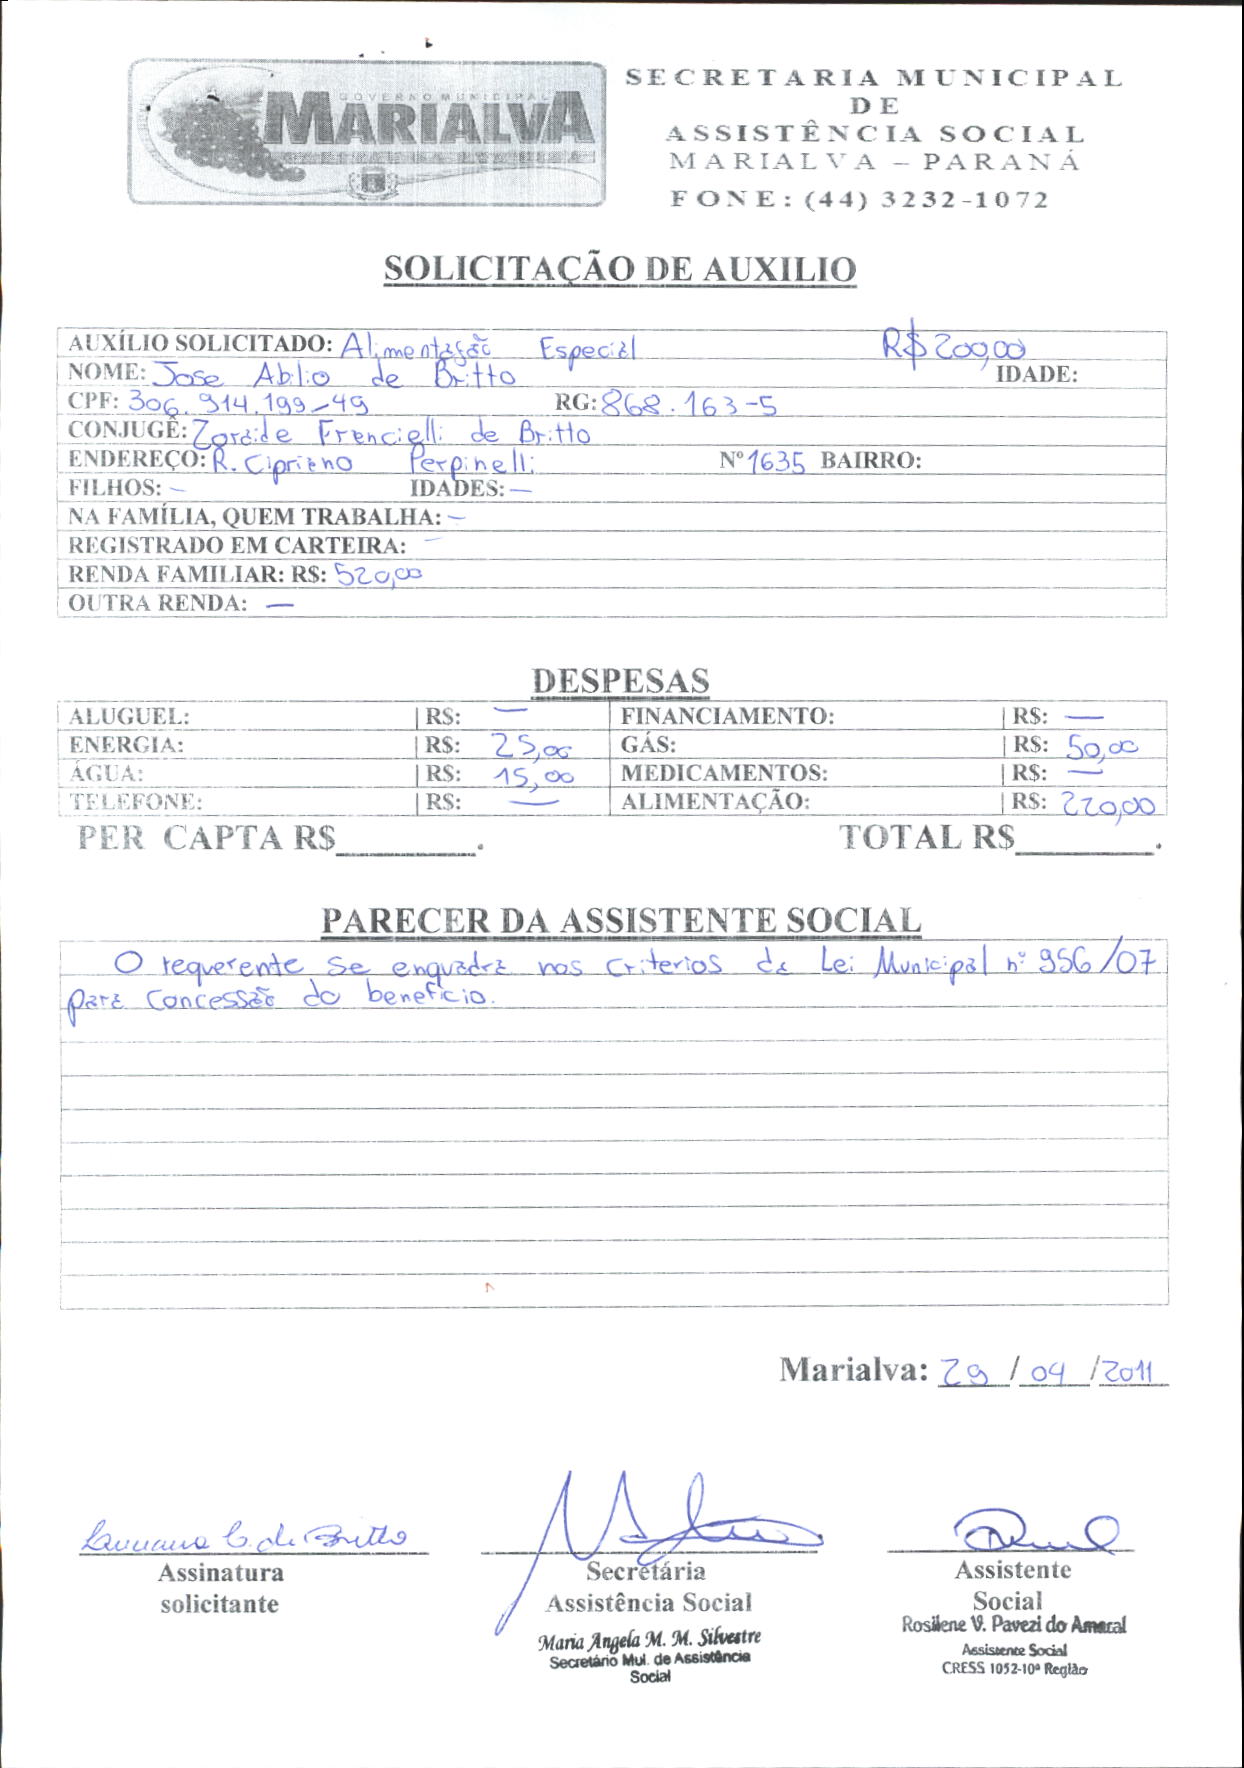 GOVERNO MUNICIPAL
MARIALVA
SECRETARIA MUNICIPAL
DE
ASSISTÊNCIA SOCIAL
MARIALVA – PARANÁ
FONE: (44) 3232-1072
SOLICITAÇÃO DE AUXILIO
AUXÍLIO SOLICITADO: Alimentação Especial R$ 200,00
NOME: Jose Abilio de Britto IDADE:
CPF: 306.914.199-49 RG: 868.163-5
CONJUGÊ: Zoraide Francielli de Britto
ENDEREÇO: R. Cipriano Perpinelli Nº 1635 BAIRRO:
FILHOS: – IDADES: –
NA FAMÍLIA, QUEM TRABALHA: –
REGISTRADO EM CARTEIRA: –
RENDA FAMILIAR: R$: 520,00
OUTRA RENDA: —
DESPESAS
ALUGUEL: R$: — FINANCIAMENTO: R$: —
ENERGIA: R$: 25,00 GÁS: R$: 50,00
ÁGUA: R$: 15,00 MEDICAMENTOS: R$: —
TELEFONE: R$: — ALIMENTAÇÃO: R$: 220,00
PER CAPTA R$________. TOTAL R$________.
PARECER DA ASSISTENTE SOCIAL
O requerente se enquadra nos criterios da Lei Municipal nº 956/07
para concessão do beneficio.
Marialva: 29 / 04 / 2011
C. de Britto
Assinatura
solicitante
Secretária
Assistência Social
Maria Angela M. M. Silvestre
Secretário Mul. de Assistência
Social
Assistente
Social
Rosilene V. Pavezi do Amaral
Assistente Social
CRESS 1052-10ª Região